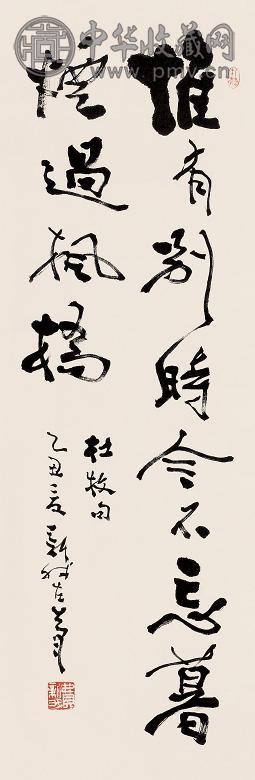 中华收藏网
www.pmv.cn
惟有別時今不忘暮
煙過楓橋
杜牧句
乙丑夏